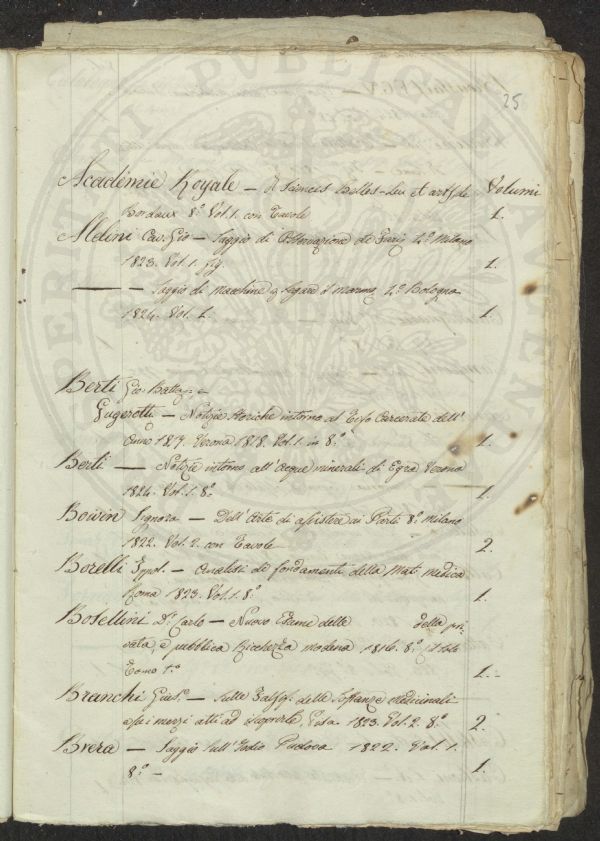 25
Académie Royale – de Sciences Belles-Let. et arts de Volumi
Bordeaux 8.° Vol. 1. con Tavole 1.
Aldini Cav. Gio – Saggio di Osservazione 4.° Milano
1823. Vol. 1. fig 1.
——— – Saggio di macchine p segare i marmi, 4.° Bologna
1824. Vol. 1. 1.
Berti Gio. Battaa –
– Notizie Storiche intorno al Tifo Carcerale dell'
Anno 1817. Verona 1818. Vol. 1. in 8.° 1.
Berti —— – Notizie intorno all'Acque minerali di Verona
1824. Vol. 1. 8.° 1.
Boivin Signora – Dell'Arte di assistere ai Parti 8.° Milano
1822. Vol. 2. con Tavole 2.
Borelli Ippol. – Analisi de' fondamenti della Mat. Medica
Roma 1823. Vol. 1. 8.° 1.
Bosellini D.r Carlo – Nuovo Esame delle della pri-
vata, e pubblica Ricchezza Modena 1816. 8.° il solo
Tomo 1.° 1.
Branchi Gius.e – Sulle Falsif. delle Sostanze medicinali
e sui mezzi atti ad scoprirle, Pisa 1823. Vol. 2. 8.° 2.
Brera – Saggio sull'Iodio Padova 1822. Vol. 1.
8.° – 1.